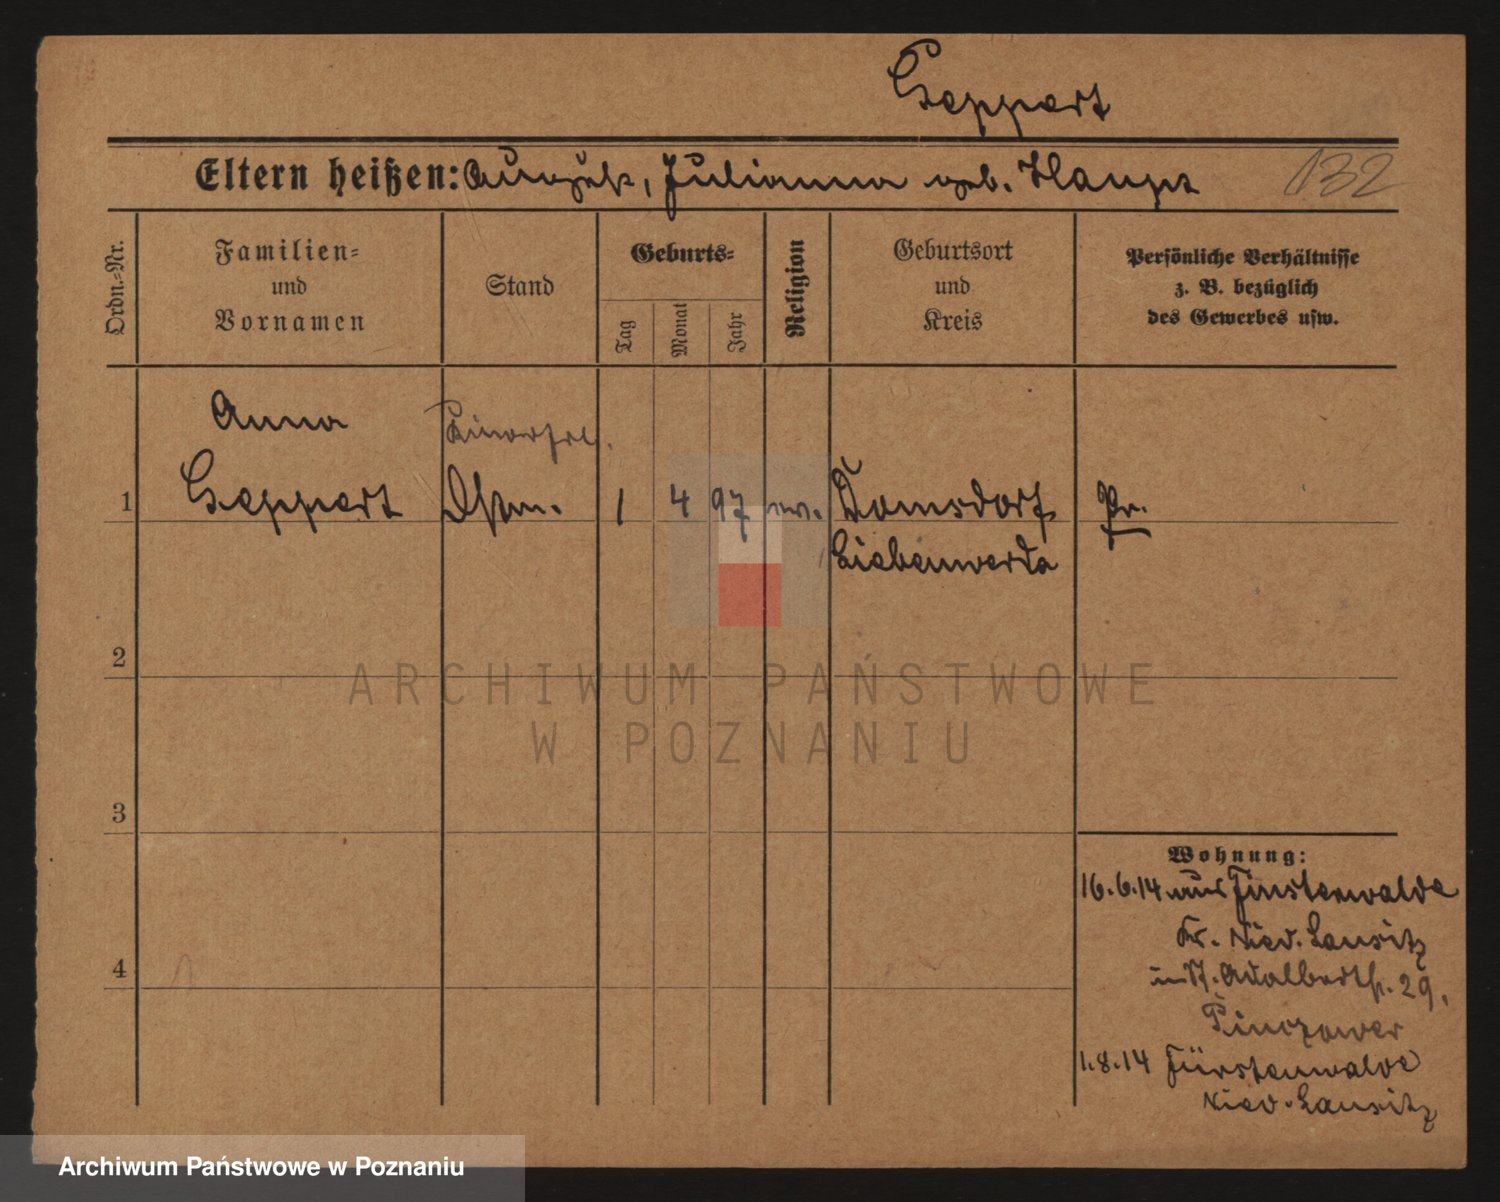 Geppert
Eltern heißen: August, Julianna geb. Haupt
132
Ordn.-Nr.
Familien-
und
Vornamen
Stand
Geburts-
Tag
Monat
Jahr
Religion
Geburtsort
und
Kreis
Persönliche Verhältnisse
z. B. bezüglich
des Gewerbes usw.
Anna
1 Geppert 1 4 97 ev. Domsdorf Pr.
Liebenwerda
2
ARCHIWUM PAŃSTWOWE
W POZNANIU
3
Wohnung:
16.6.14 aus Finsterwalde
Kr. Nied. Lausitz
4
in St. Adalbertstr. 29,
Pinczower
1.8.14 Fürstenwalde
Nied. Lausitz
Archiwum Państwowe w Poznaniu